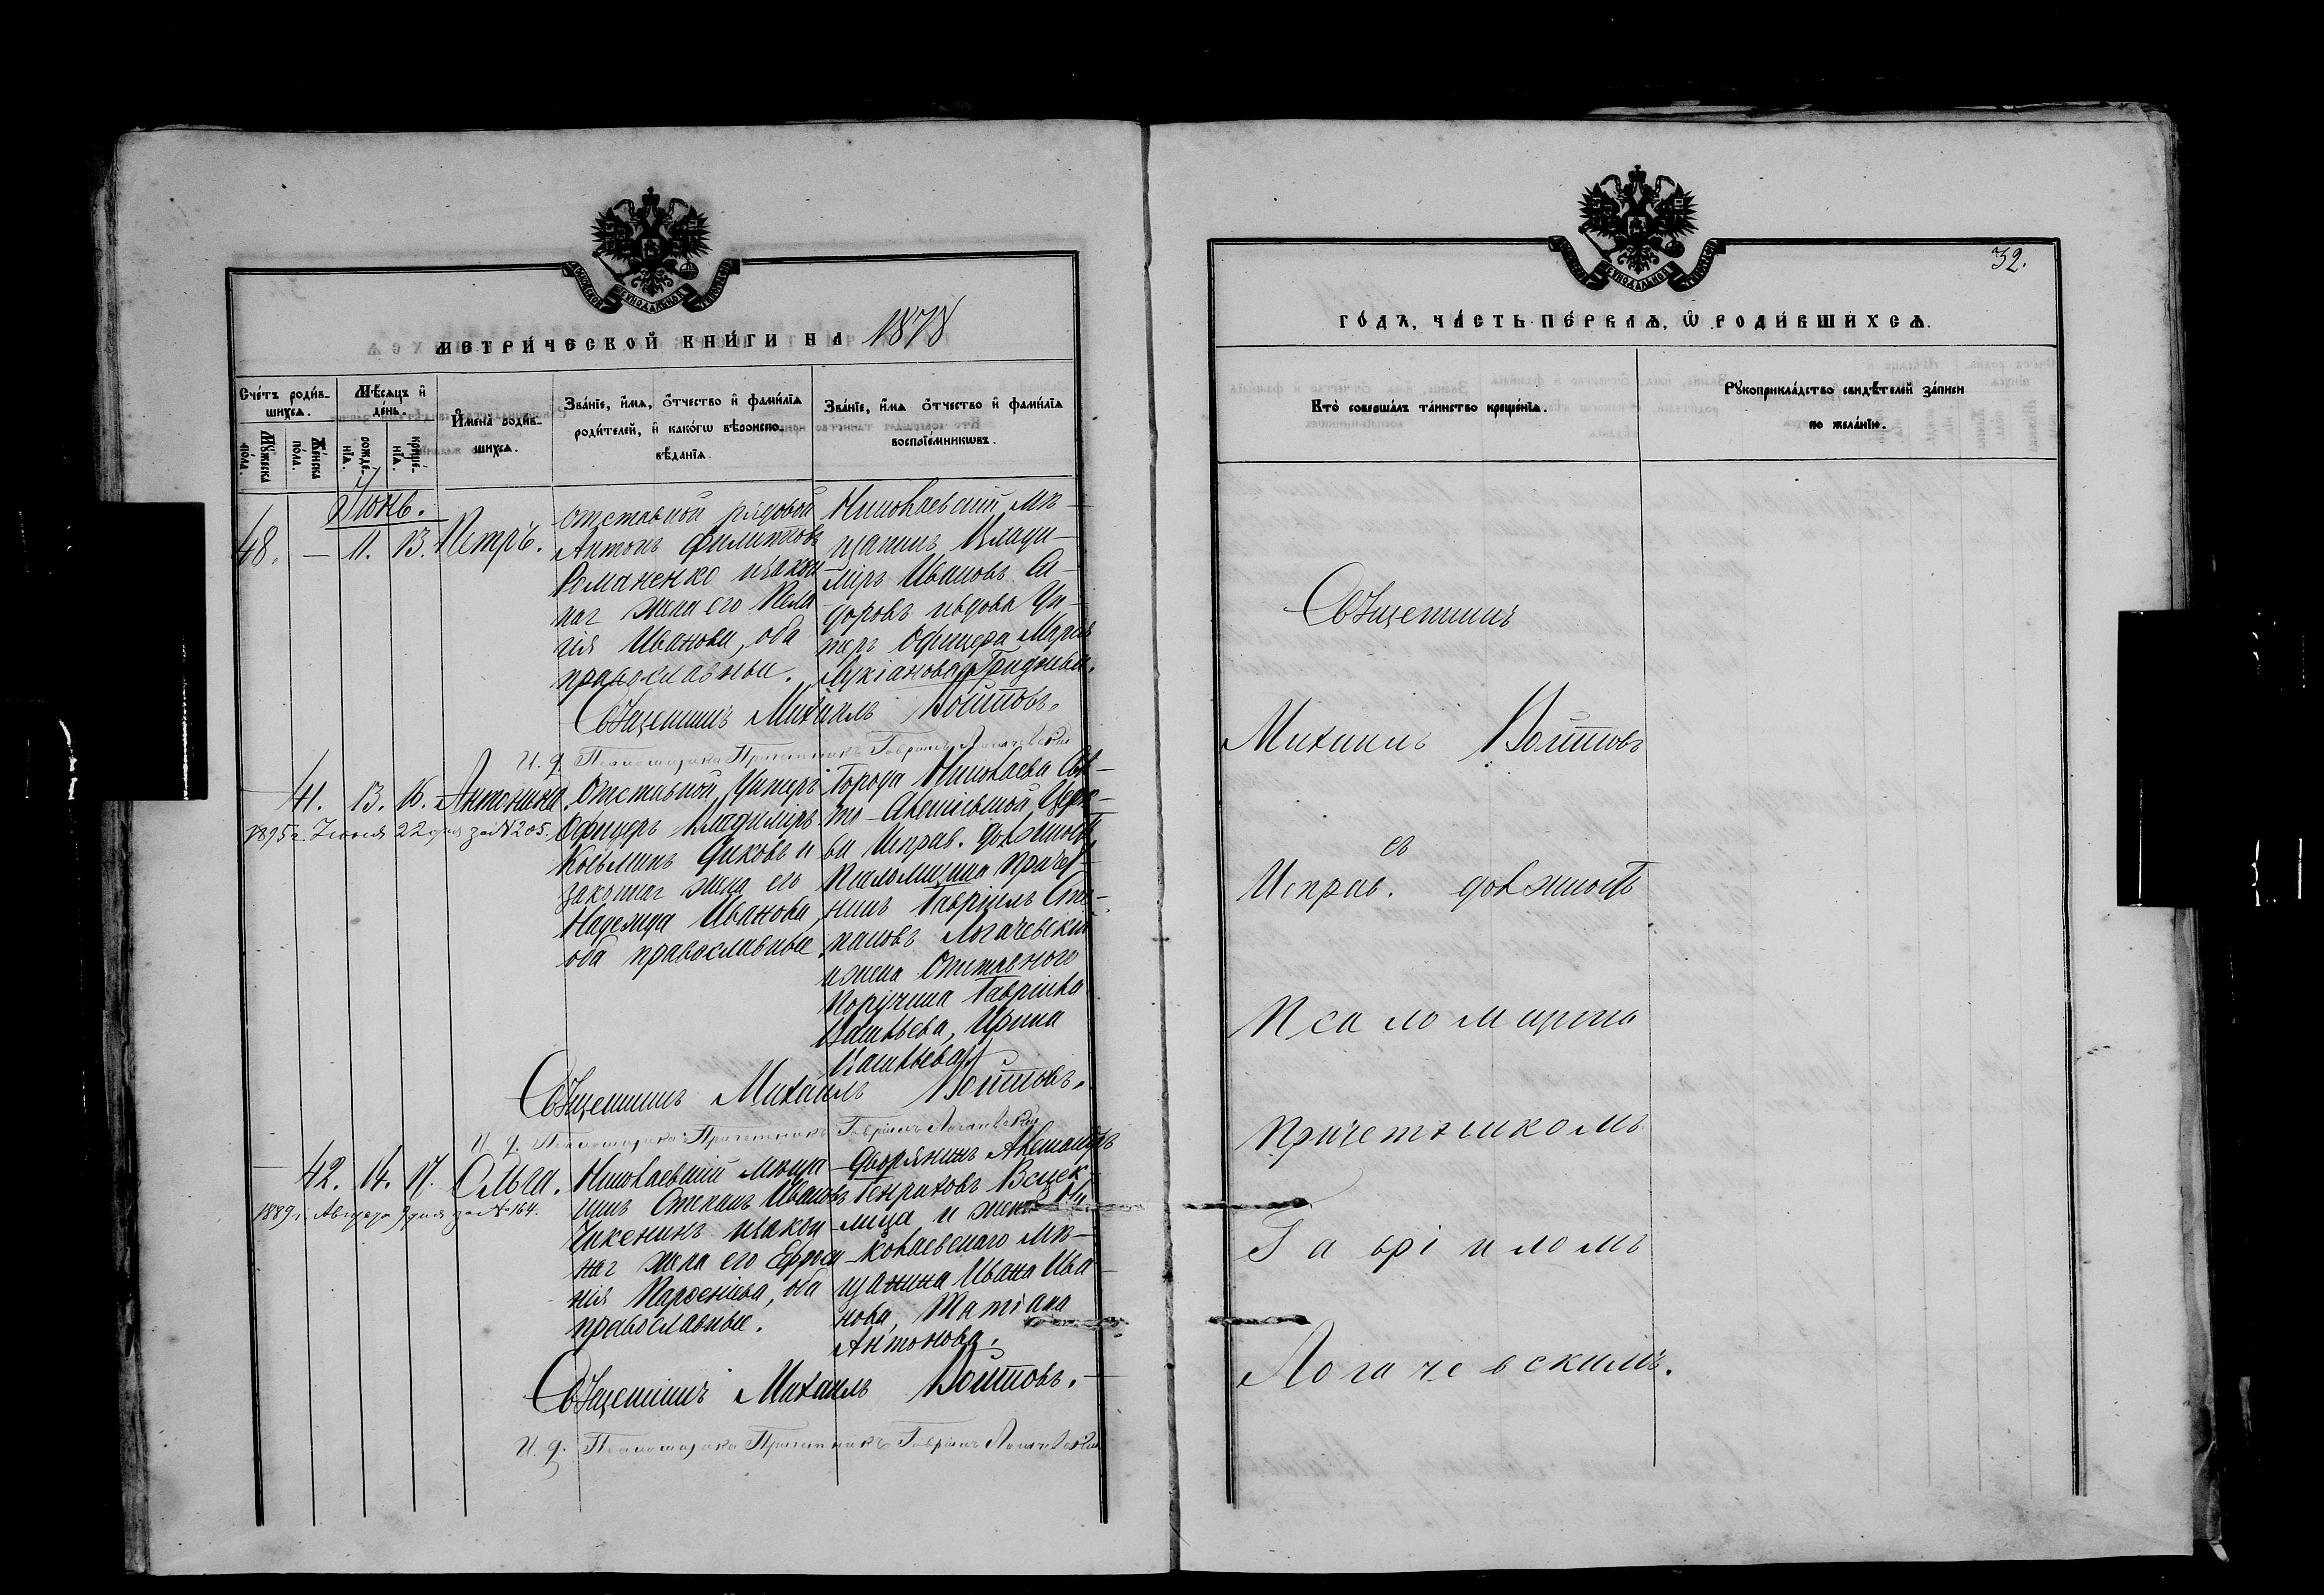 МЕТРИ́ЧЕСКОЙ КНИ́ГИ НА 1878
Сче́тъ роди́в-
шихся.
Мѣ́сяцъ и҆
де́нь.
Му́жеска
по́ла.
Же́нска
по́ла.
рожде-
нїѧ.
креще́-
нїѧ.
И҆мена̀ роди́в-
шихся.
Зва́нїе, и҆́мѧ, ѻ҆́тчество и҆ фами́лїѧ
роди́телей, и҆ како́гѡ вѣроиспо-
вѣ́данїѧ.
Зва́нїе, и҆́мѧ ѻ҆́тчество и҆ фами́лїѧ
воспрїе́мникѡвъ.
Іюнь.
48. — 11. 13. Петръ.
Отставной рядовой
Антонъ Филиповъ
Романенко и закон
ная жена его Пела
гія Иванова, оба
православные.
Николаевскій мѣ-
щанинъ Влади-
міръ Ивановъ Си-
доровъ и вдова Ун-
теръ Офицера Марія
Лукіанова Гриднева.
Священникъ Михаилъ Войтовъ.
И. д. Псаломщика Причетникъ Гавріилъ Логачевскій
— 41. 13. 16. Антонина.
1895 г. Іюня 22 дня за №205.
Отставной Унтеръ
Офицеръ Владиміръ
Косьминъ Диковъ и
законная жена его
Надежда Иванова,
оба православные.
Города Николаева Свя-
то-
ви Исправ. должность
Псаломщика Причет-
никъ Гавріилъ Сте-
пановъ Логачевскій
и жена Отставного
Поручика Гавріила
Васильева, Ирина
Васильева.
Священникъ Михаилъ Войтовъ.
И. д. Псаломщика Причетникъ Гавріилъ Логачевскій
— 42. 14. 17. Ольга.
1889 г. Августа 9 дня за №164.
Николаевскій мѣща-
нинъ Степанъ Ивановъ
Чикенинъ и закон
ная жена его Ефроси-
нія Парѳеніева, оба
православные.
Дворянинъ Александръ
Генриховъ
и жена Ни-
колаевскаго мѣ-
щанина Ивана Ива
нова, Татіана
Антонова.
Священникъ Михаилъ Войтовъ.
И. д. Псаломщика Причетникъ Гавріилъ Логачевскій
32.
ГО́ДЪ, ЧА́СТЬ ПЕ́РВАѦ, Ѡ҆ РОДИ́ВШИХСѦ.
Кто̀ соверша́лъ та́инство креще́нїѧ.
Рꙋкоприкла́дство свидѣ́телей за́писи
по жела́нїю.
Священникъ
Михаилъ Войтовъ
съ
Исправ. должность
Псаломщика
Причетникомъ
Гавріиломъ
Логачевскимъ.